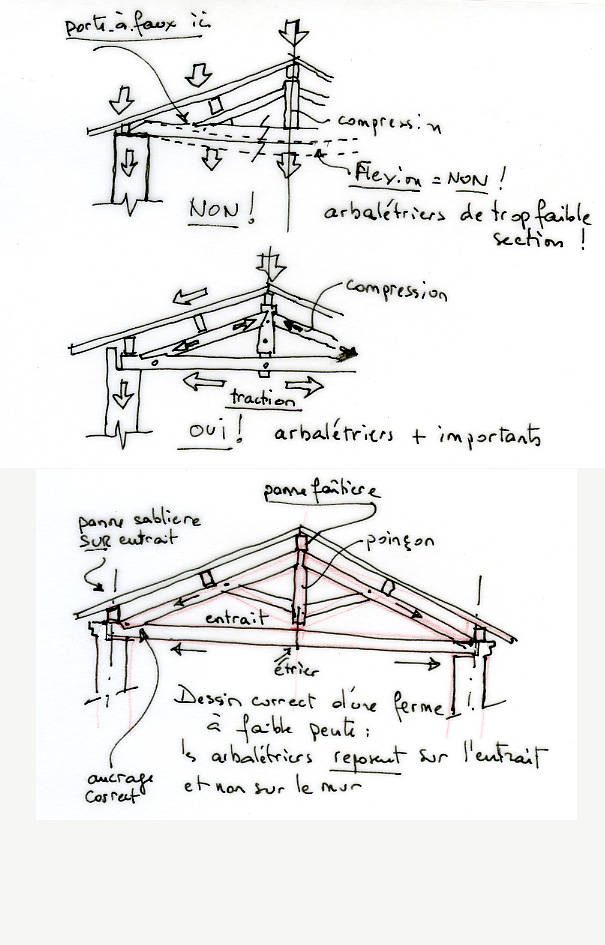 porte-à-faux ici
compression
Flexion = NON !
NON !
arbalétriers de trop faible
section !
compression
traction
OUI ! arbalétriers + importants
panne faîtière
panne sablière
SUR entrait
poinçon
entrait
étrier
Dessin correct d'une ferme
à faible pente :
ls arbalétriers reposent sur l'entrait
et non sur le mur
ancrage
correct